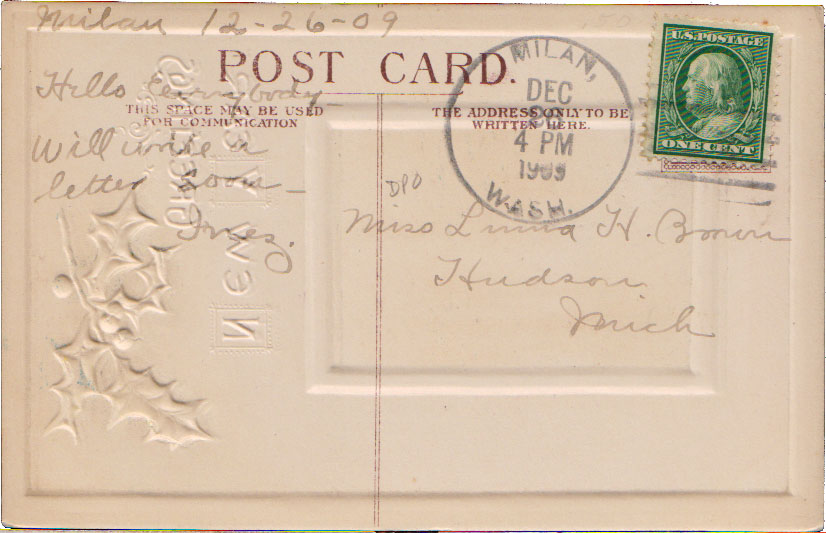 Milan 12-26-09
POST CARD.
Hello Everybody —
THIS SPACE MAY BE USED
FOR COMMUNICATION
Will write a
letter soon —
Inez.
THE ADDRESS ONLY TO BE
WRITTEN HERE.
MILAN,
DEC
4 PM
1909
WASH.
U.S. POSTAGE
ONE CENT
DPO
Miss H. Brown
Hudson
Mich